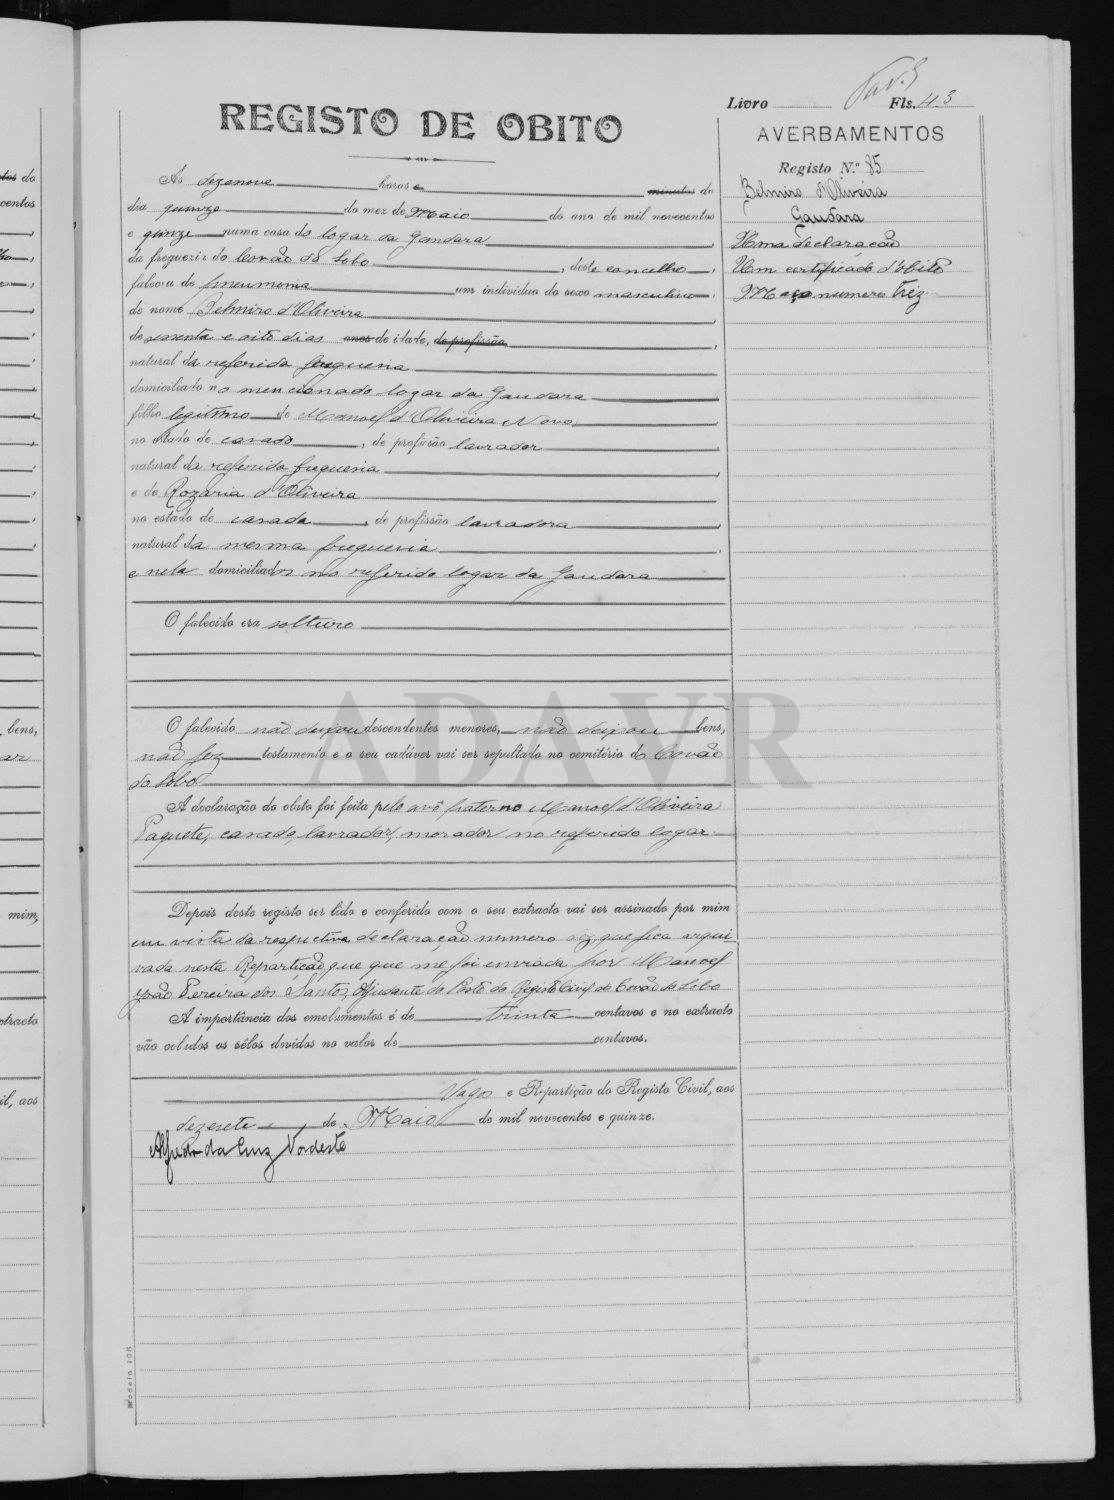 Livro Fls. 43
REGISTO DE OBITO
Ás dezenove horas e minutos do
dia quinze do mez de Maio do ano de mil novecentos
e quinze numa casa do logar da Gandara,
da freguezia do Covão do Lobo, deste concelho,
faleceu de pneumonia um individuo do sexo masculino,
de nome Belmiro d'Oliveira
de sesenta e oito dias anos de idade, de profissão,
natural da referida freguesia
domiciliado no mencionado logar da Gandara
filho legitimo de Manoel d'Oliveira Novo,
no estado de casado, de profissão lavrador
natural da referida freguesia
e de Rozaria d'Oliveira
no estado de casada, de profissão lavradora
natural da mesma freguesia
e nela domiciliados no referido logar da Gandara
O falecido era solteiro
O falecido não deixou descendentes menores, não deixou bens,
não fez testamento e o seu cadáver vai ser sepultado no cemitério do Covão
do Lobo
A declaração do obito foi feita pelo avô paterno Manoel d'Oliveira
Paquete, casado, lavrador, morador no referido logar.
Depois deste registo ser lido e conferido com o seu extracto vai ser assinado por mim
em vista da respectiva declaração numero que fica arqui-
vada nesta Repartição, que que me foi enviada por Manoel
João Pereira dos Santos, Ajudante do Posto do Registo Civil de Covão do Lobo
A importância dos emolumentos é de trinta centavos e no extracto
vão colados os sêlos devidos no valor de centavos.
Vagos e Repartição do Registo Civil, aos
dezesete de Maio de mil novecentos e quinze.
Alfredo da Cruz Nordeste
AVERBAMENTOS
Registo N.º 85
Belmiro d'Oliveira
Gandara
Uma declaração
Um certificado d'obito
Maço numero trez
ADAVR
Modelo 108
do
centos
bens,
ar
mim,
xtracto
il, aos